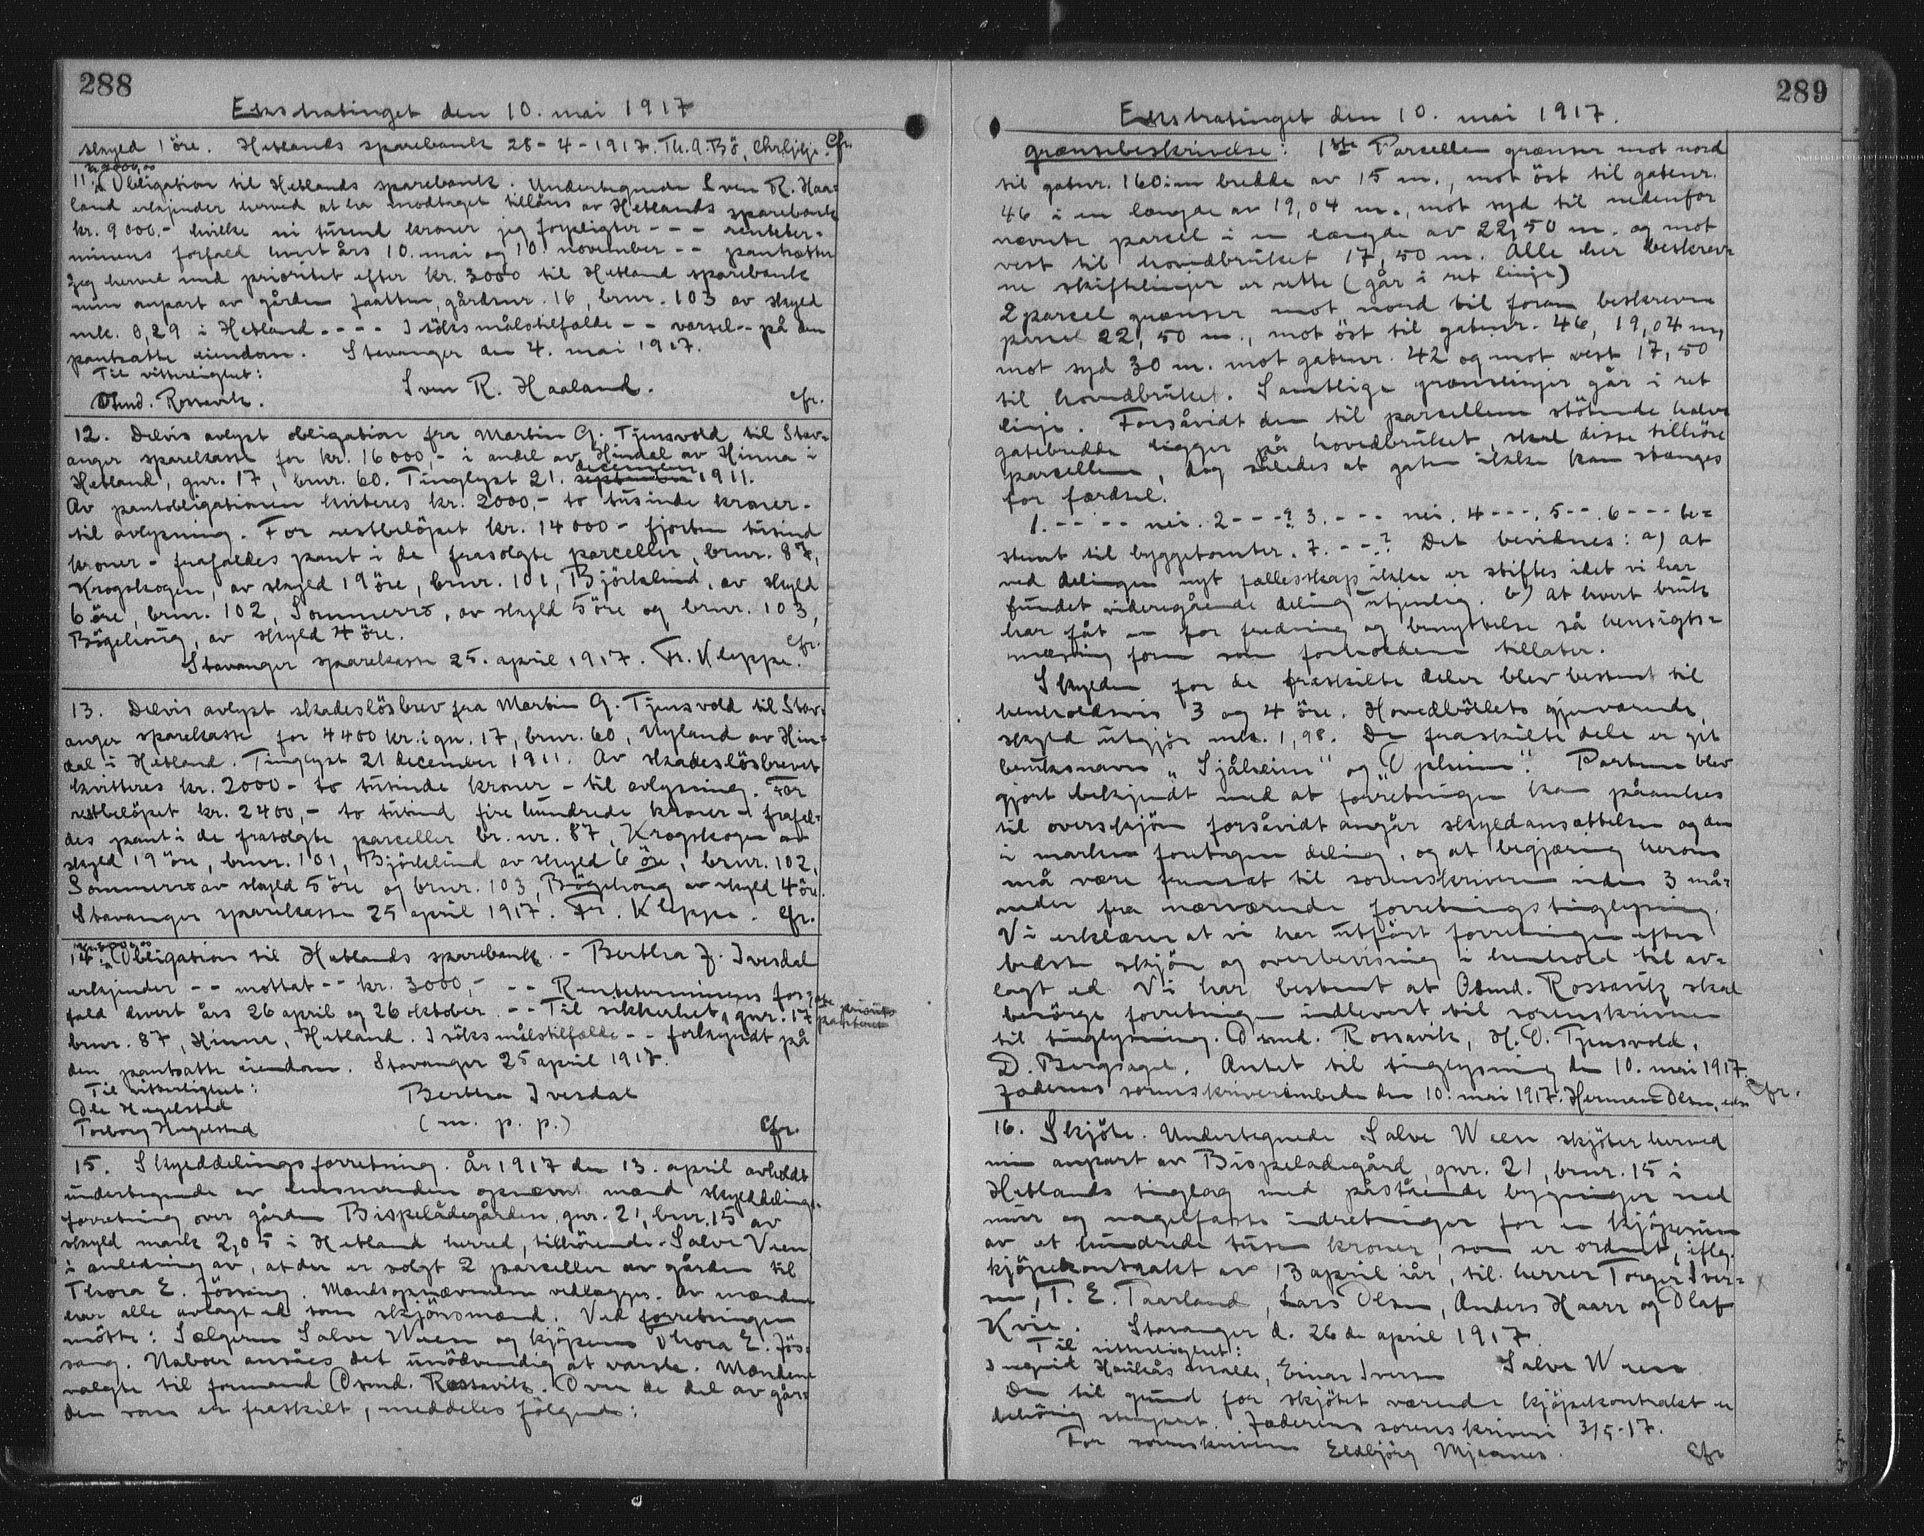 288
Ekstratinget den 10. mai 1917
skyld 1 öre. Hetlands sparebank 28-4-1917. Th. A. Bö, Chr. Ljelje. Cfr.
kr. 9000,00
11. Obligation til Hetlands sparebank. Undertegnede Sven R. Haa-
land erkjender herved at ha modtaget tillåns av Hetlands sparebank
kr. 9000.- hvilke ni tusind kroner jeg forpligter - - - renteter-
minens forfald hvert års 10. mai og 10. november - - pantsætter
jeg herved med prioritet efter kr. 3000 til Hetland sparebank
min anpart av gården Jaatten, gårdsnr. 16, brnr. 103 av skyld
mk. 0,29 i Hetland - - - - I söksmålstilfælde - - varsel - - på den
pantsatte eiendom. Stavanger den 4. mai 1917.
Til vitterlighet:
Sven R. Haaland.
Osmd. Rossavik. Cfr.
12. Delvis avlyst obligation fra Martin G. Tjensvold til Stav-
anger sparekasse for kr. 16000,- i andel av Hindal av Hinna i
december
Hetland, gnr. 17, bnr. 60. Tinglyst 21. september 1911.
Av pantobligationen kviteres kr. 2000,- to tusinde kroner -
til avlysning. For restbelöpet kr. 14000 - fjorten tusind
kroner - frafaldes pant i de frasolgte parceller, brnr. 87,
Krogskogen, av skyld 19 öre, brnr. 101, Björklund, av skyld
6 öre, brnr. 102, Sommerro, av skyld 5 öre og brnr. 103,
Bögehaug, av skyld 4 öre.
Stavanger sparekasse 25. april 1917. Fr. Kleppe. Cfr.
13. Delvis avlyst skadeslösbrev fra Martin G. Tjensvold til Stav-
anger sparekasse for 4400 kr. i gn. 17, brnr. 60, Nyland av Hin-
dal i Hetland. Tinglyst 21 december 1911. Av skadeslösbrevet
kvitteres kr. 2000 - to tusinde kroner - til avlysning. For
restbelöpet kr. 2400,- to tusind fire hundrede kroner - frafal-
des pant i de frasolgte parceller br. nr. 87, Krogskogen av
skyld 19 öre, brnr. 101, Björklund av skyld 6 öre, brnr. 102,
Sommerro av skyld 5 öre og brnr. 103, Bögehaug av skyld 4 öre.
Stavanger sparekasse 25 april 1917. Fr. Kleppe. Cfr.
kr. 3000,00
14. Obligation til Hetlands sparebank. - Bertha J. Ivesdal
erkjender - - mottat - - kr. 3000,- - - Renteterminens for-
fald hvert års 26 april og 26 oktober. - - Til sikkerhet, gnr. 17
1ste prioritets panteret
brnr. 87, Hinna, Hetland. I söksmålstilfælde - - forkyndt på
den pantsatte eiendom. Stavanger 25 april 1917.
Til vitterlighet:
Berthea Ivesdal
Ole Hagelsted
(m. p. p.)
Torborg Hagelsted Cfr.
15. Skylddelingsforretning. År 1917 den 13. april avholdt
undertegnede av lensmanden opnævnt mænd skylddelings-
forretning over gården Bispelådegården, gnr. 21, bnr. 15 av
skyld mark 2,05 i Hetland herred, tilhörende Salve Ween
i anledning av, at der er solgt 2 parceller av gården til
Thora E. Jössang. Mandsopnævnelsen vedlægges. Av mændene
har alle avlagt ed som skjönsmænd. Ved forretningen
mötte: Sælgeren Salve Ween og kjöperen Thora E. Jös-
sang. Naboer ansåes det unödvendig at varsle. Mændene
valgte til formand Osmd. Rossavik. Over de del av går-
den som er fraskilt, meddeles fölgende:
289
Ekstratinget den 10. mai 1917.
grænsebeskrivelse: 1ste Parcellen grænser mot nord
til gatenr. 160 i en bredde av 15 m., mot öst til gatenr.
46 i en længde av 19,04 m., mot syd til nedenfor
nævnte parcel i en længde av 22,50 m. og mot
vest til hovedbruket 17,50 m. Alle her beskrev-
ne skiftelinjer er rette (går i ret linje)
2 parcel grænser mot nord til foran beskrevne
parcel 22,50 m., mot öst til gatenr. 46, 19,04 m,
mot syd 30 m. mot gatenr. 42 og mot vest 17,50
til hovedbruket. Samtlige grænselinjer går i ret
linje. Forsåvidt den til parcellen stötende halve
gatebredde ligger på hovedbruket, skal disse tilhöre
parcellene, dog således at gaten ikke kan stænges
for færdsel.
1. - - - - nei. 2 - - - ? 3. - - - nei. 4 - - -. 5 - -. 6 - - - be-
stemt til byggetomter. 7. - - ? Det bevidnes: a) at
ved delingen nyt fællesskap ikke er stiftet idet vi har
fundet videregående deling utjenlig. b) at hvert bruk
har fåt en for fredning og benyttelse så hensigts-
mæssig form som forholdene tillater.
Skylden for de fraskilte deler blev bestemt til
henholdsvis 3 og 4 öre. Hovedbölets gjenværende
skyld utgjör mk. 1,98. De fraskilte dele er git
bruksnavn „Sjåheim“ og „Opheim“. Partene blev
gjort bekjendt med at forretningen kan påankes
til overskjön forsåvidt angår skyldansættelsen og den
i marken foretagne deling, og at begjæring herom
må være fremsat til sorenskriveren inden 3 må-
neder fra nærværende forretnings tinglysning.
Vi erklærer at vi har utfört forretningen efter
bedste skjön og overbevisning i henhold til av-
lagt ed. Vi har bestemt at Osmd. Rossavik skal
besörge forretningen indlevert til sorenskriveren
til tinglysning. Osmd. Rossavik, H. O. Tjensvold,
D. Bergsagel. Antat til tinglysning den 10. mai 1917.
Jæderens sorenskriverembede den 10. mai 1917. Herman Olsen, eds. Cfr.
16. Skjöte. Undertegnede Salve Ween skjöter herved
min anpart av Bispeladegård, gnr. 21, brnr. 15 i
Hetlands tinglag med påstående bygninger med
mur og nagelfaste indretninger for en kjöpesum
av et hundrede tusen kroner, som er ordnet, ifölg.
kjöpekontrakt av 13 april iår, til herrer Torger Iver-
sen, T. E. Taarland, Lars Olsen, Anders Haarr og Olaf
Kvie. Stavanger d. 26de april 1917
Til vitterlighet:
Ingrid Haukås Malde, Einar Iversen Salve Ween
Den til grund for skjötet værende kjöpekontrakt er
behörig stemplet. Jæderens sorenskriveri 3/5-17.
For sorenskriveren Eldbjörg Mjaanes. Cfr